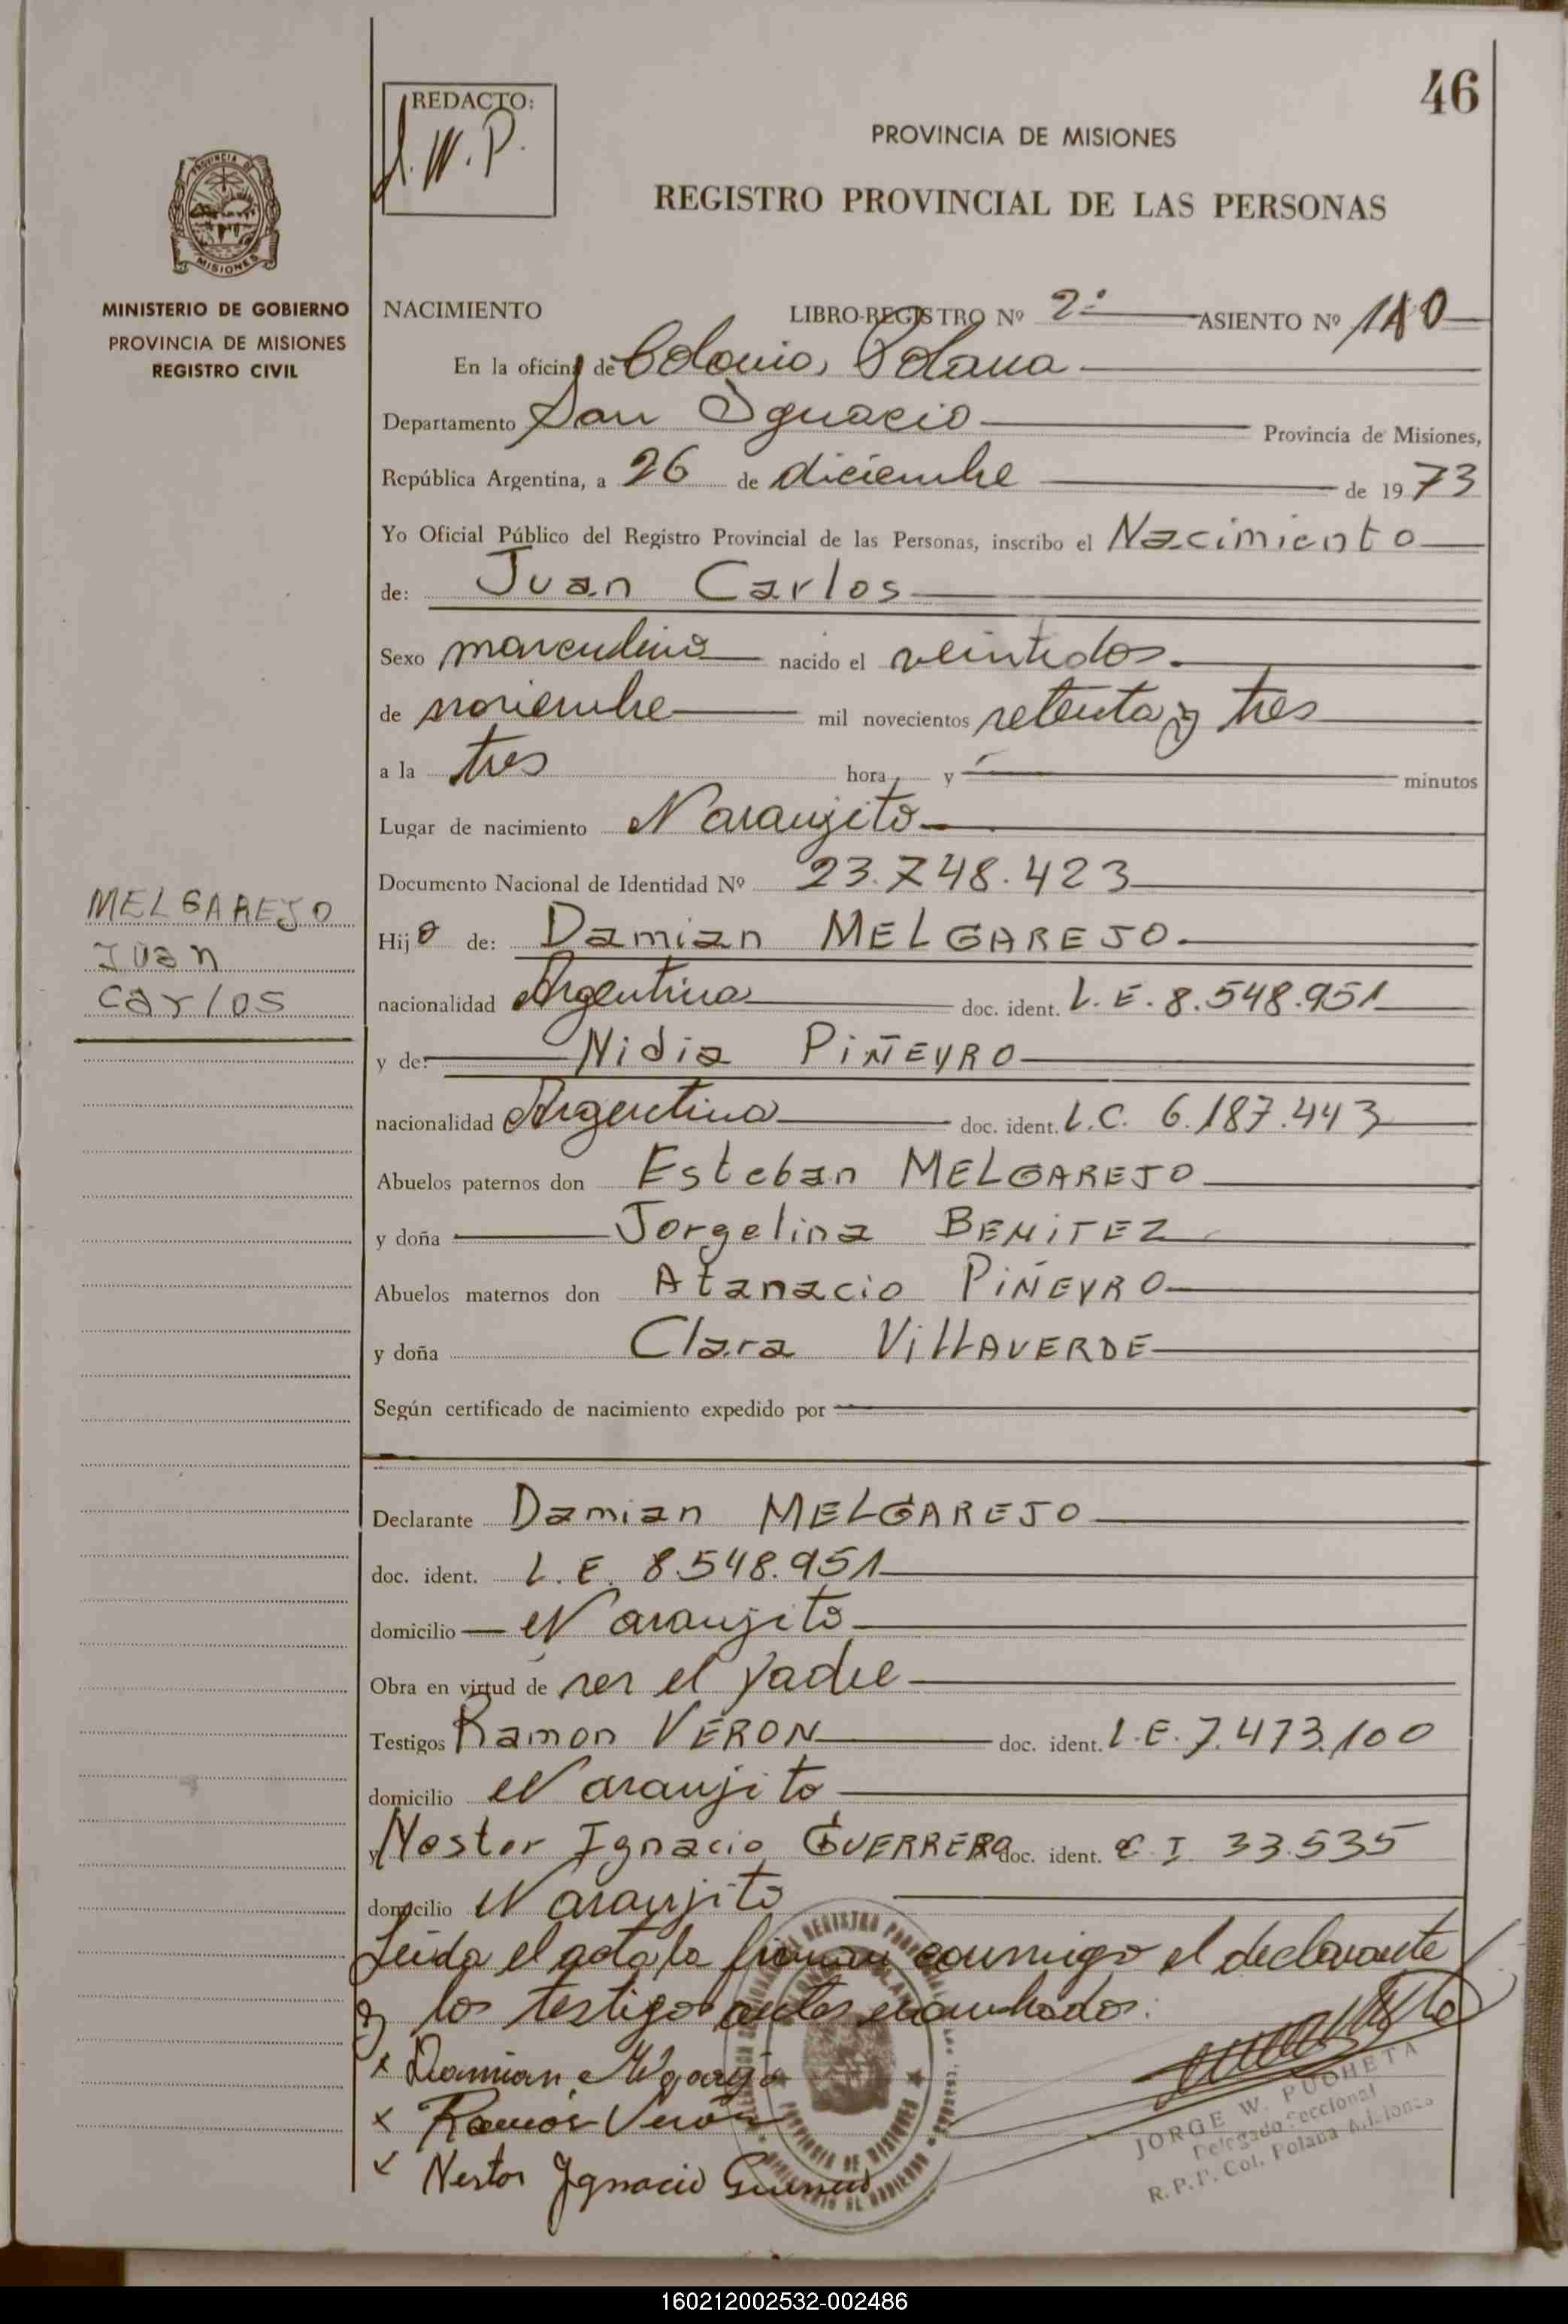 46
REDACTO:
J. W. P.
PROVINCIA DE MISIONES
REGISTRO PROVINCIAL DE LAS PERSONAS
PROVINCIA DE
MISIONES
MINISTERIO DE GOBIERNO
PROVINCIA DE MISIONES
REGISTRO CIVIL
NACIMIENTO LIBRO-REGISTRO Nº 2º ASIENTO Nº
En la oficina de Colonia Polana
Departamento San Ignacio Provincia de Misiones,
República Argentina, a 26 de diciembre de 1973
Yo Oficial Público del Registro Provincial de las Personas, inscribo el Nacimiento
de: Juan Carlos
Sexo masculino nacido el veintidos
de noviembre mil novecientos setenta y tres
a la tres hora y minutos
Lugar de nacimiento Naranjito
Documento Nacional de Identidad Nº 23.748.423
MELGAREJO
Juan
Carlos
Hijo de: Damian MELGAREJO
nacionalidad Argentina doc. ident. L.E. 8.548.951
y de: Nidia PIÑEYRO
nacionalidad Argentina doc. ident. L.C. 6.187.443
Abuelos paternos don Esteban MELGAREJO
y doña Jorgelina BENITEZ
Abuelos maternos don Atanacio PIÑEYRO
y doña Clara VILLAVERDE
Según certificado de nacimiento expedido por
Declarante Damian MELGAREJO
doc. ident. L.E. 8.548.951
domicilio Naranjito
Obra en virtud de ser el padre
Testigos Ramon VERON doc. ident. L.E. 7.473.100
domicilio Naranjito
y Nestor Ignacio GUERRERO doc. ident. C.I. 33.535
domicilio Naranjito
Leida el acta la firman conmigo el declarante
y los testigos antes nombrados:
x Damian Melgarejo
x Ramón Verón
x Nestor Ygnacio Guerrero
PROVINCIA DE MISIONES
JORGE W. PUCHETA
Delegado Seccional
R.P.P. Col. Polana Misiones
160212002532-002486